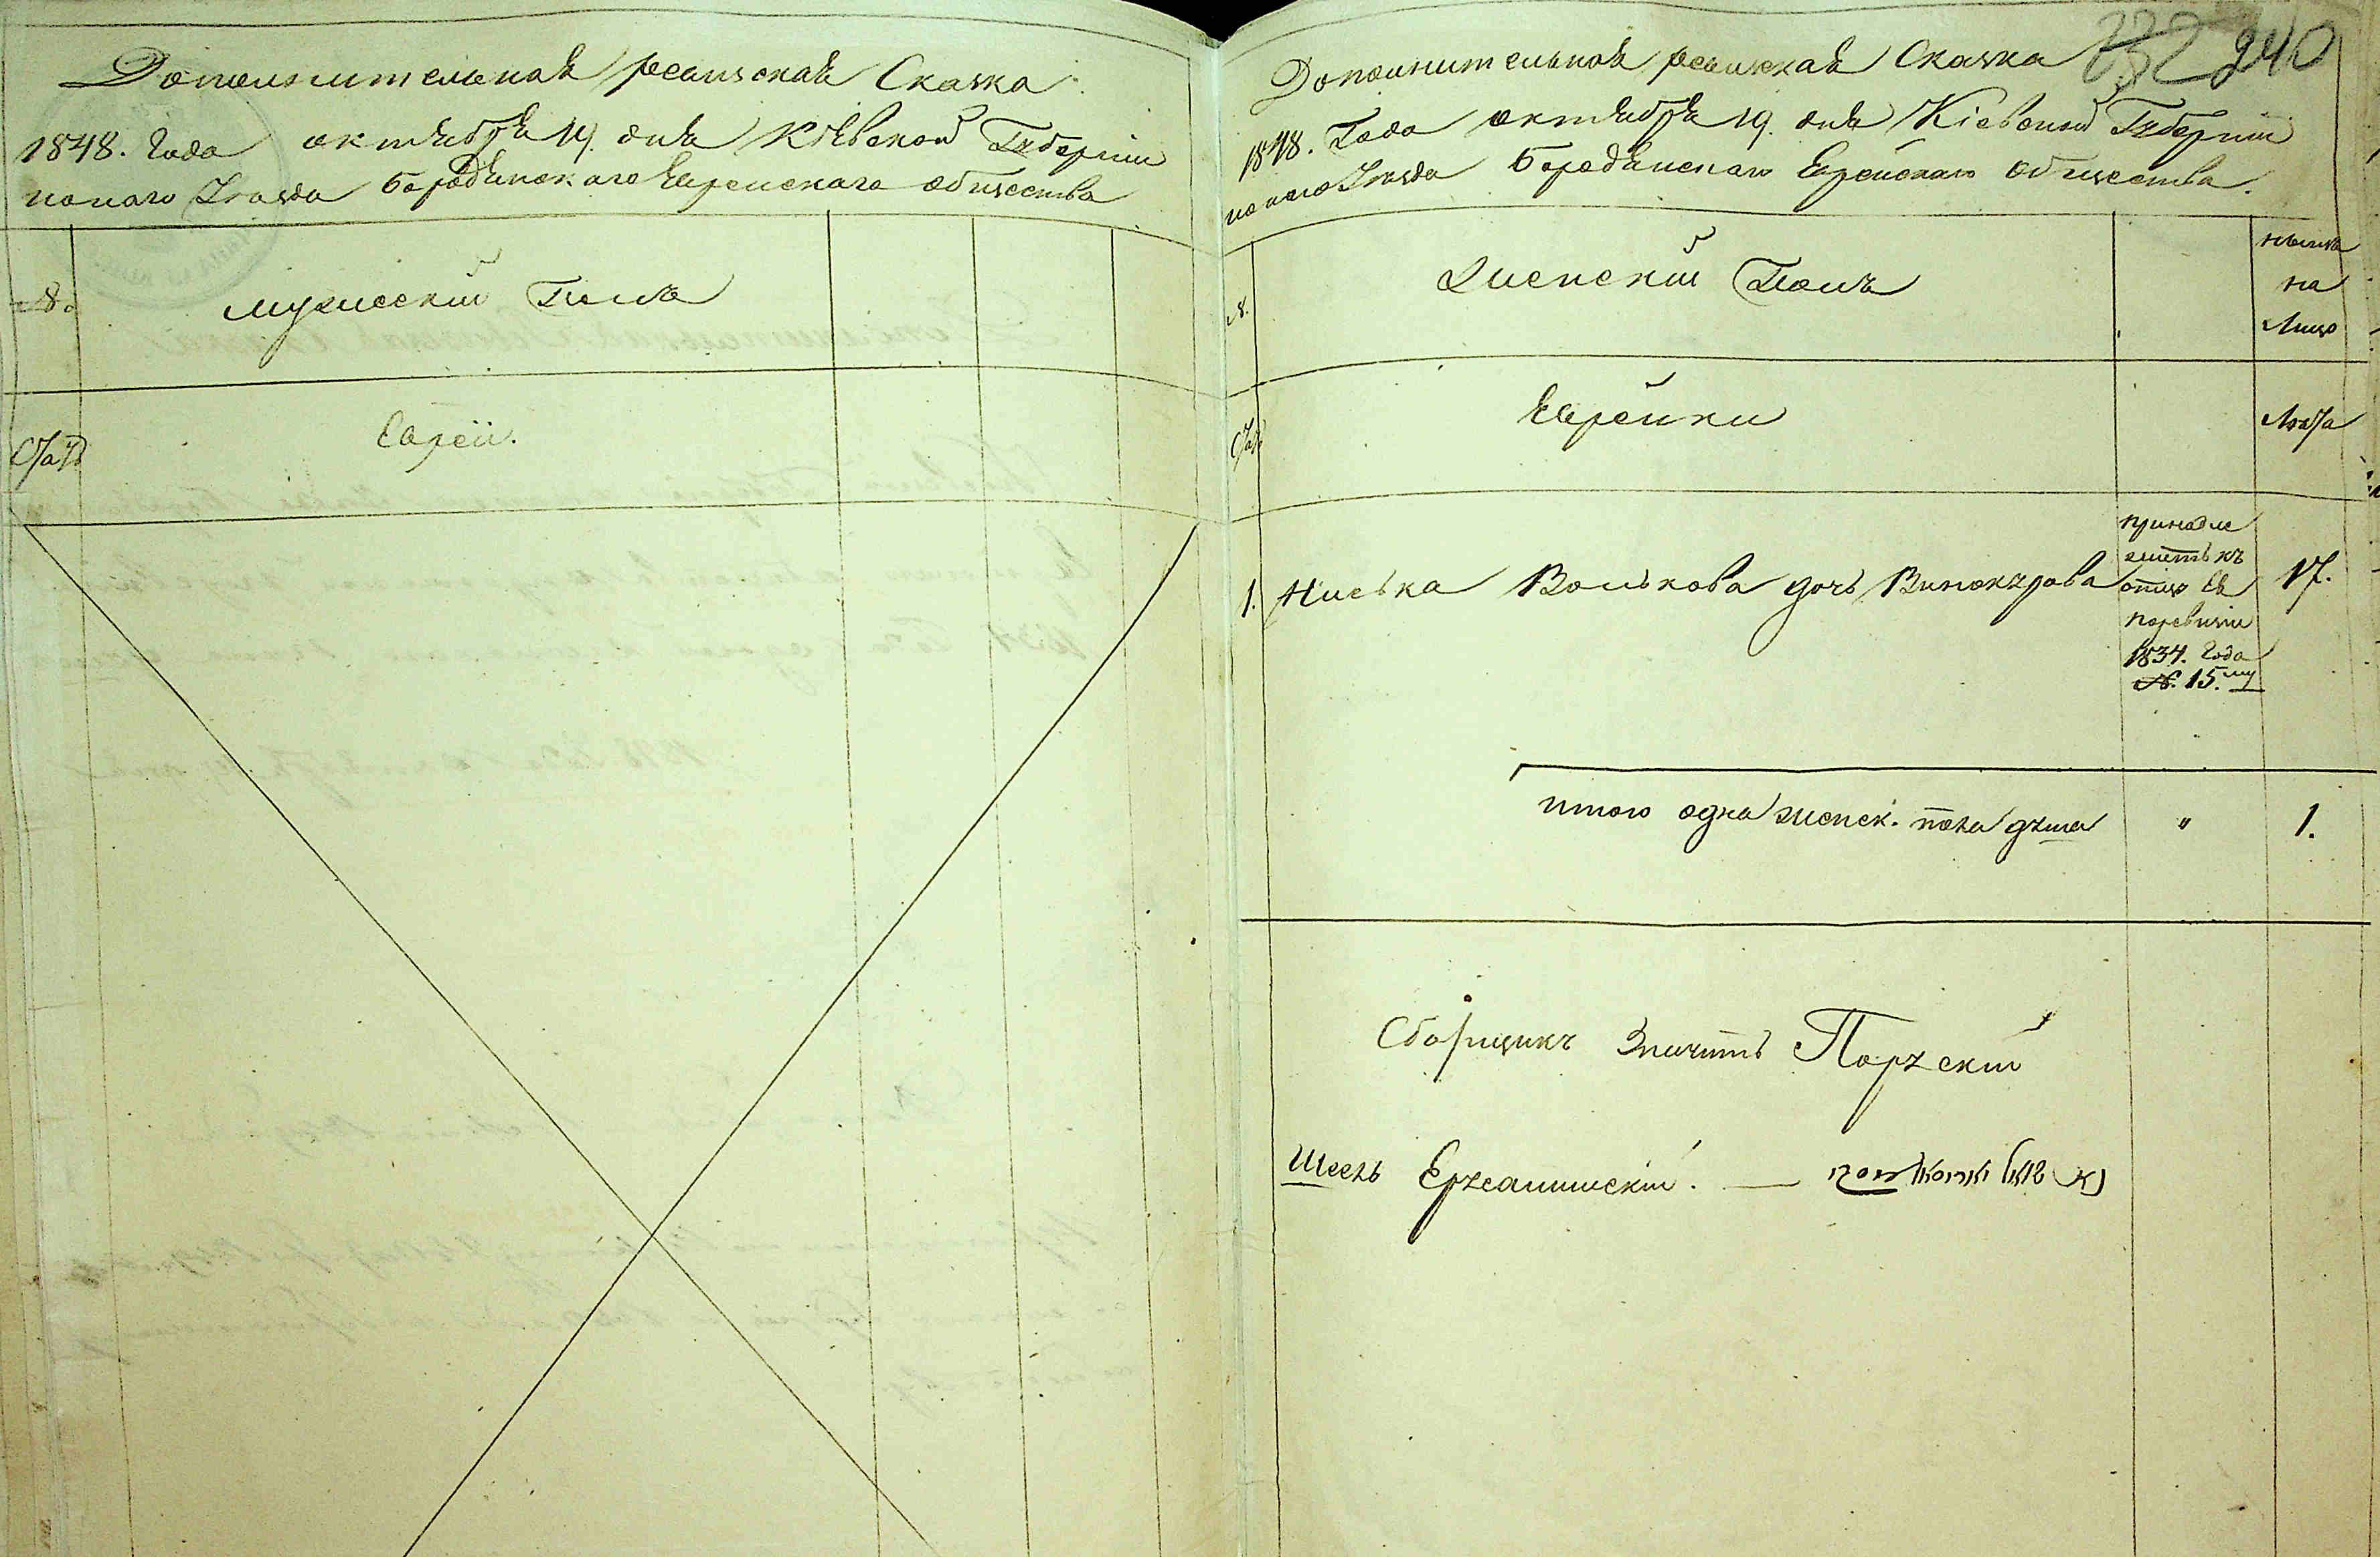 Дополнительная ревизская Сказка
1848. Года октября 19. дня Кіевской Губерніи
наго Уезда Бородянскаго Еврейскаго общества
№. мужеский Полъ
Евреи.
232 240
Дополнительная ревизская Сказка
1848. Года октября 19. дня Кіевской Губерніи
наго Уезда Бородянскаго Еврейскаго общества.
№. Женский Полъ
ныне
на
Лицо
Еврейки
Лета
1. Ниська Волькова дочь Винокурова 17.
принадле
житъ къ
отцу Ея
поревизіи
1834. Года
№. 15.му
итого одна женск. пола душа " 1.
Сборщикъ Значитъ Порускій